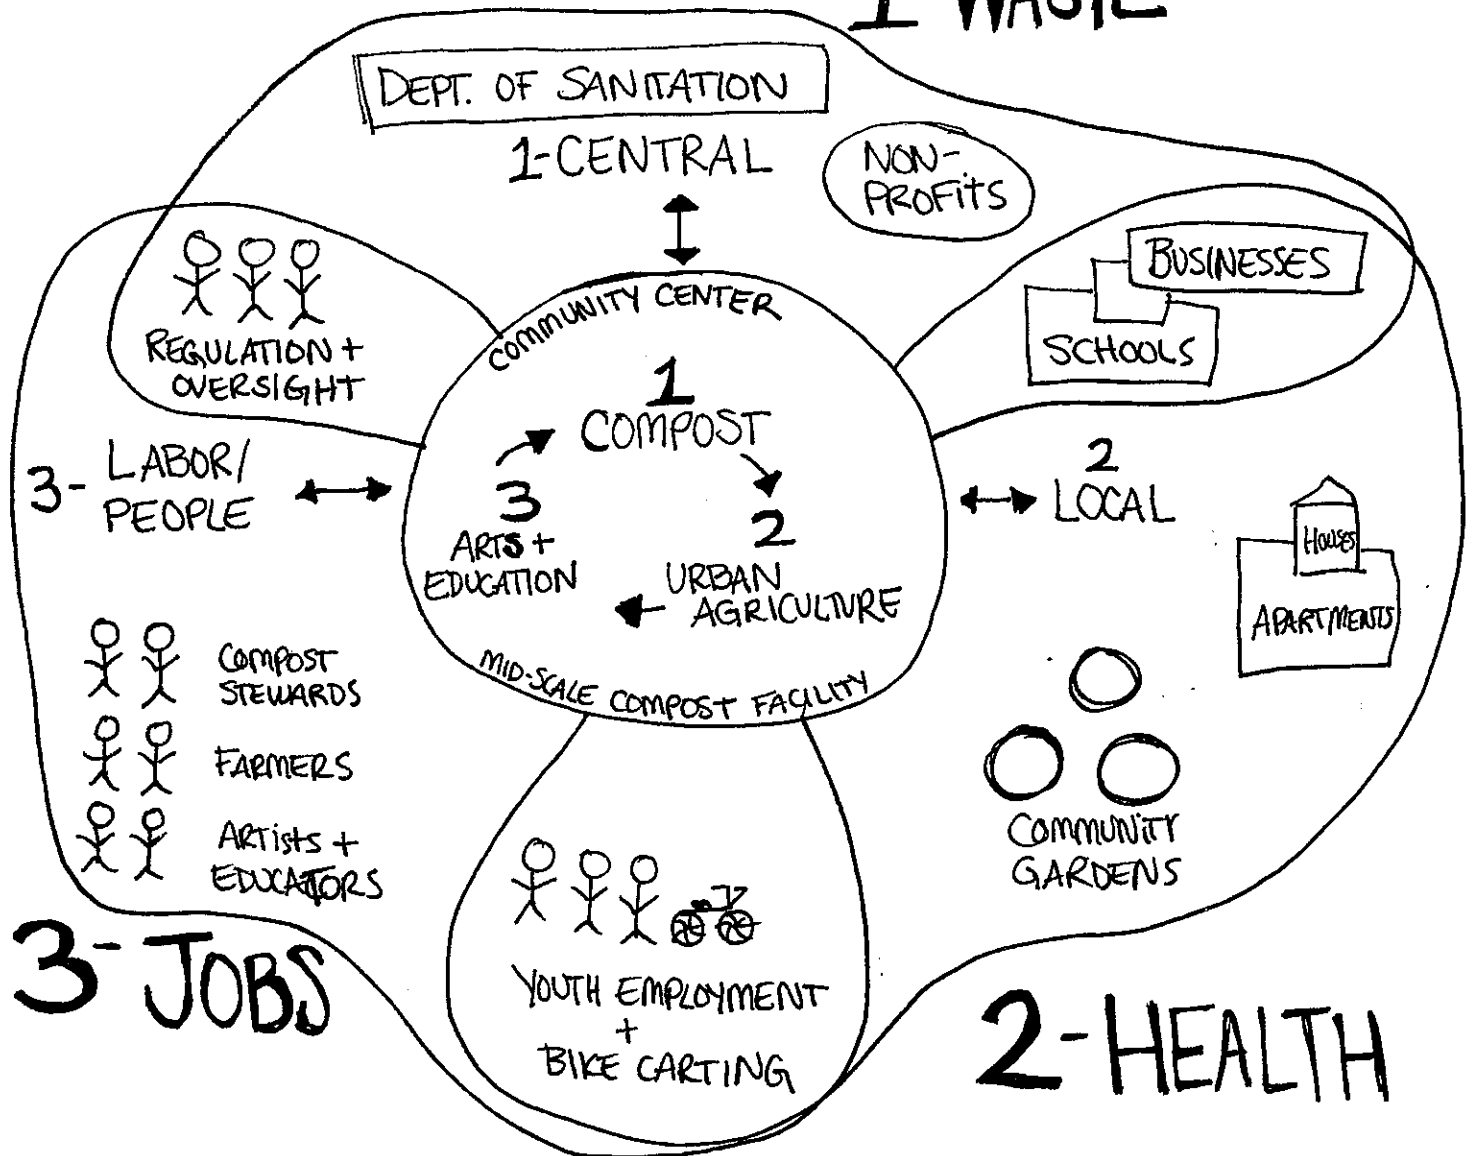 1 WASTE
DEPT. OF SANITATION
1-CENTRAL
NON-
PROFITS
BUSINESSES
SCHOOLS
REGULATION +
OVERSIGHT
COMMUNITY CENTER
1
COMPOST
3
ARTS +
EDUCATION
2
URBAN
AGRICULTURE
MID-SCALE COMPOST FACILITY
3- LABOR/
PEOPLE
2
LOCAL
HOUSES
APARTMENTS
COMPOST
STEWARDS
FARMERS
ARTISTS +
EDUCATORS
COMMUNITY
GARDENS
YOUTH EMPLOYMENT
+
BIKE CARTING
3- JOBS
2-HEALTH